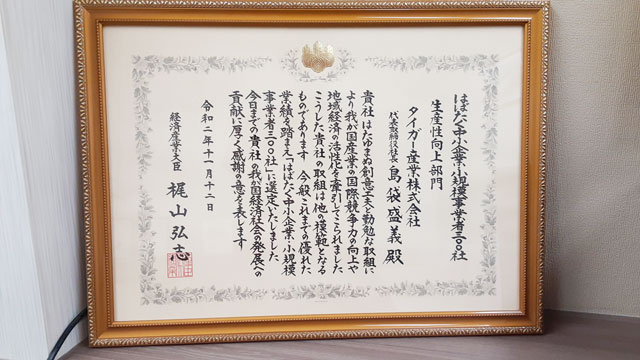 はばたく中小企業・小規模事業者三〇〇社
生産性向上部門
タイガー産業株式会社
代表取締役社長 島袋盛義殿
貴社はたゆまぬ創意工夫と勤勉な取組に
より我が国産業の国際競争力の向上や
地域経済の活性化を牽引してこられました
こうした貴社の取組は他の模範となる
ものであります 今般これまでの優れた
業績を踏まえ「はばたく中小企業・小規模
事業者三〇〇社」に選定いたしました
今日までの貴社の我が国経済社会の発展への
貢献に厚く感謝の意を表します
令和二年十一月十二日
経済産業大臣 梶山弘志